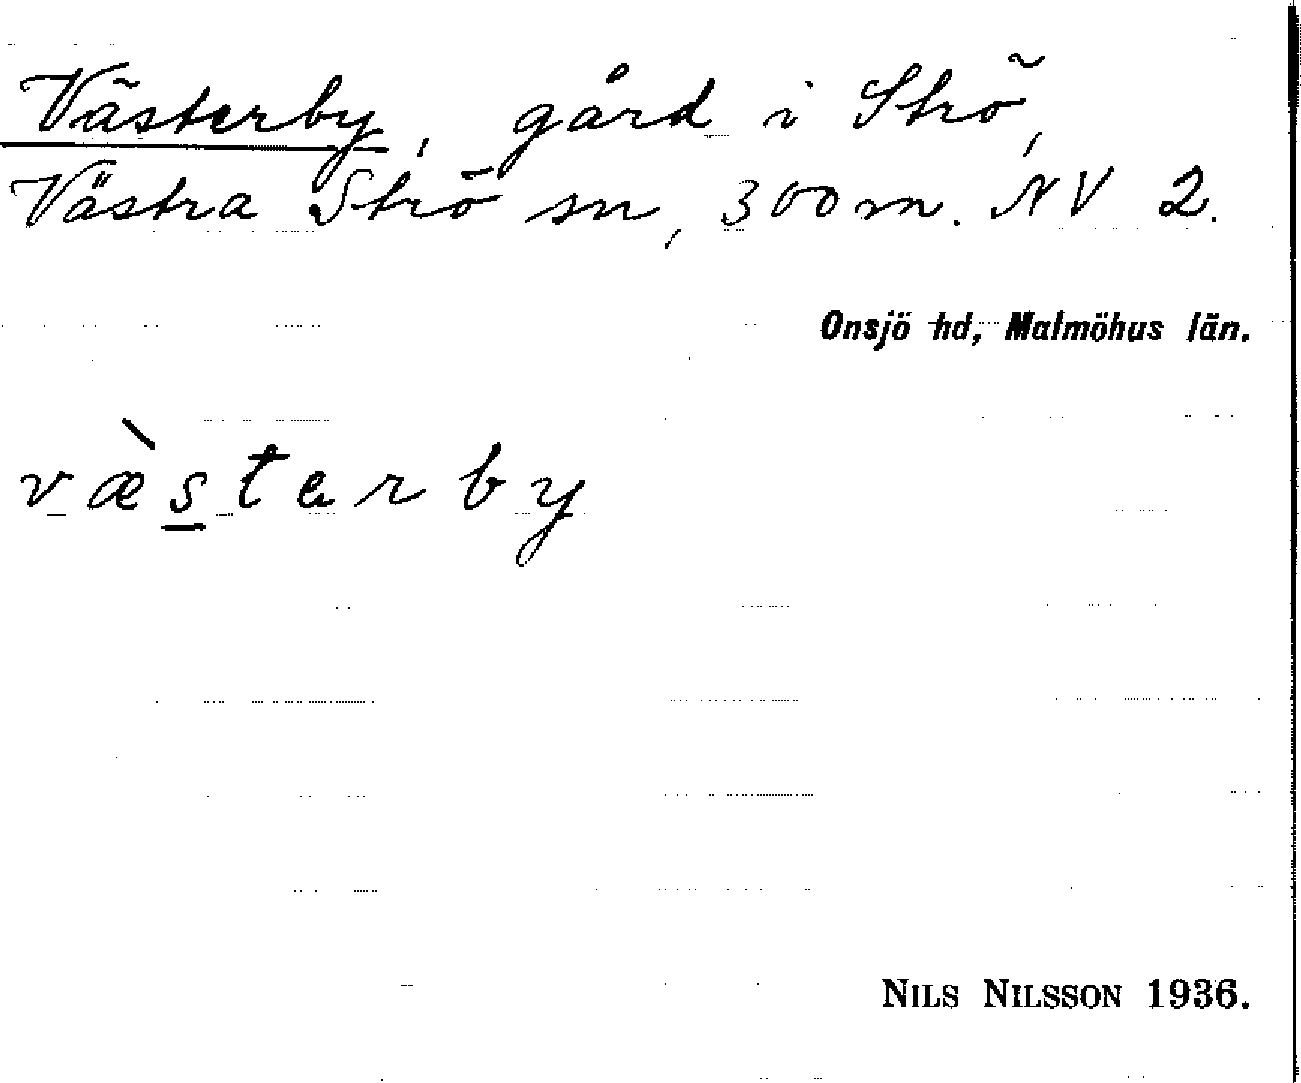 Västerby, gård i Strö,
Västra Strö sn, 300 m. NV 2.
Onsjö hd, Malmöhus län.
væ̀sterby
NILS NILSSON 1936.